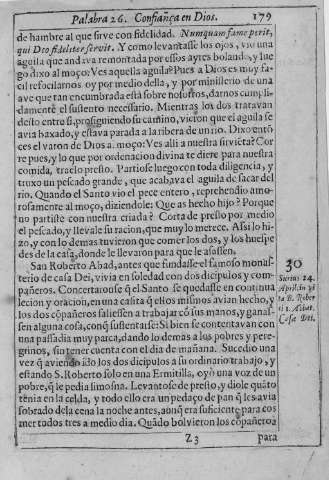 Palabra 26. Confiança en Dios. 179
de hambre al que sirve con fidelidad. Nunquam fame perit,
qui Deo fideliter servit. Y como levantasse los ojos, vio una
aguila que andava remontada por essos ayres bolando, y lue
go dixo al moço: Ves aquella aguila? Pues a Dios es muy fa-
cil refocilarnos oy por medio della, y por ministerio de una
ave que tan encumbrada està sobre nosotros, darnos cumpli-
damente el sustento necessario. Mientras los dos tratavan
desto entre si, prosiguiendo su camino, vieron que el aguila se
avia baxado, y estava parada a la ribera de un rio. Dixo entõ
ces el varon de Dios al moço: Ves alli a nuestra sirvieta? Cor
re pues, y lo que por ordenacion divina te diere para nuestra
comida, traelo presto. Partiose luego con toda diligencia, y
truxo un pescado grande, que acabava el aguila de sacar del
rio. Quando el Santo vio el pece entero, reprehendio amo-
rosamente al moço, diziendole: Que as hecho hijo? Porque
no partiste con nuestra criada? Corta de presto por medio
el pescado, y llevale su racion, que muy lo merece. Assi lo hi-
zo, y con lo demas tuvieron que comer los dos, y los huespe
des de la casa, donde le llevaron para que le asassen.
San Roberto Abad, antes que fundasse el famoso monas-
terio de casa Dei, vivia en soledad con dos dicipulos y com-
pañeros. Concertarose q̃ el Santo se quedasse en continua
lecion y oracion, en una casita q̃ ellos mismos avian hecho, y
los dos cõpañeros saliessen a trabajar cõ sus manos, y ganas-
sen alguna cosa, conq̃ sustentarse: Si bien se contentavan con
una passadia muy parca, dando lo demas a los pobres y pere-
grinos, sin tener cuenta con el dia de mañana. Sucedio una
vez q̃ aviendo ido los dos dicipulos a su ordinario trabajo, y
estando S. Roberto solo en una Ermitilla, oyò una voz de un
pobre, q̃ le pedia limosna. Levantose de presto, y diole quãto
tenia en la celda, y todo ello era un pedaço de pan q̃ les avia
sobrado de la cena la noche antes, aunq̃ era suficiente para co
mer todos tres a medio dia. Quãdo bolvieron los cõpañeros
Z 3 para
30
Surius 24.
April. in vi
ta B. Rober
ti 1. Abbat.
Casæ Dei.